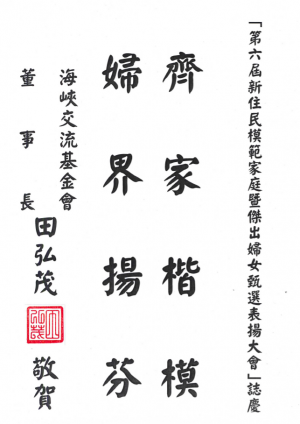 「第六屆新住民模範家庭暨傑出婦女甄選表揚大會」誌慶
齊家楷模
婦界揚芬
海峽交流基金會
董事長 田弘茂 敬賀
田弘茂